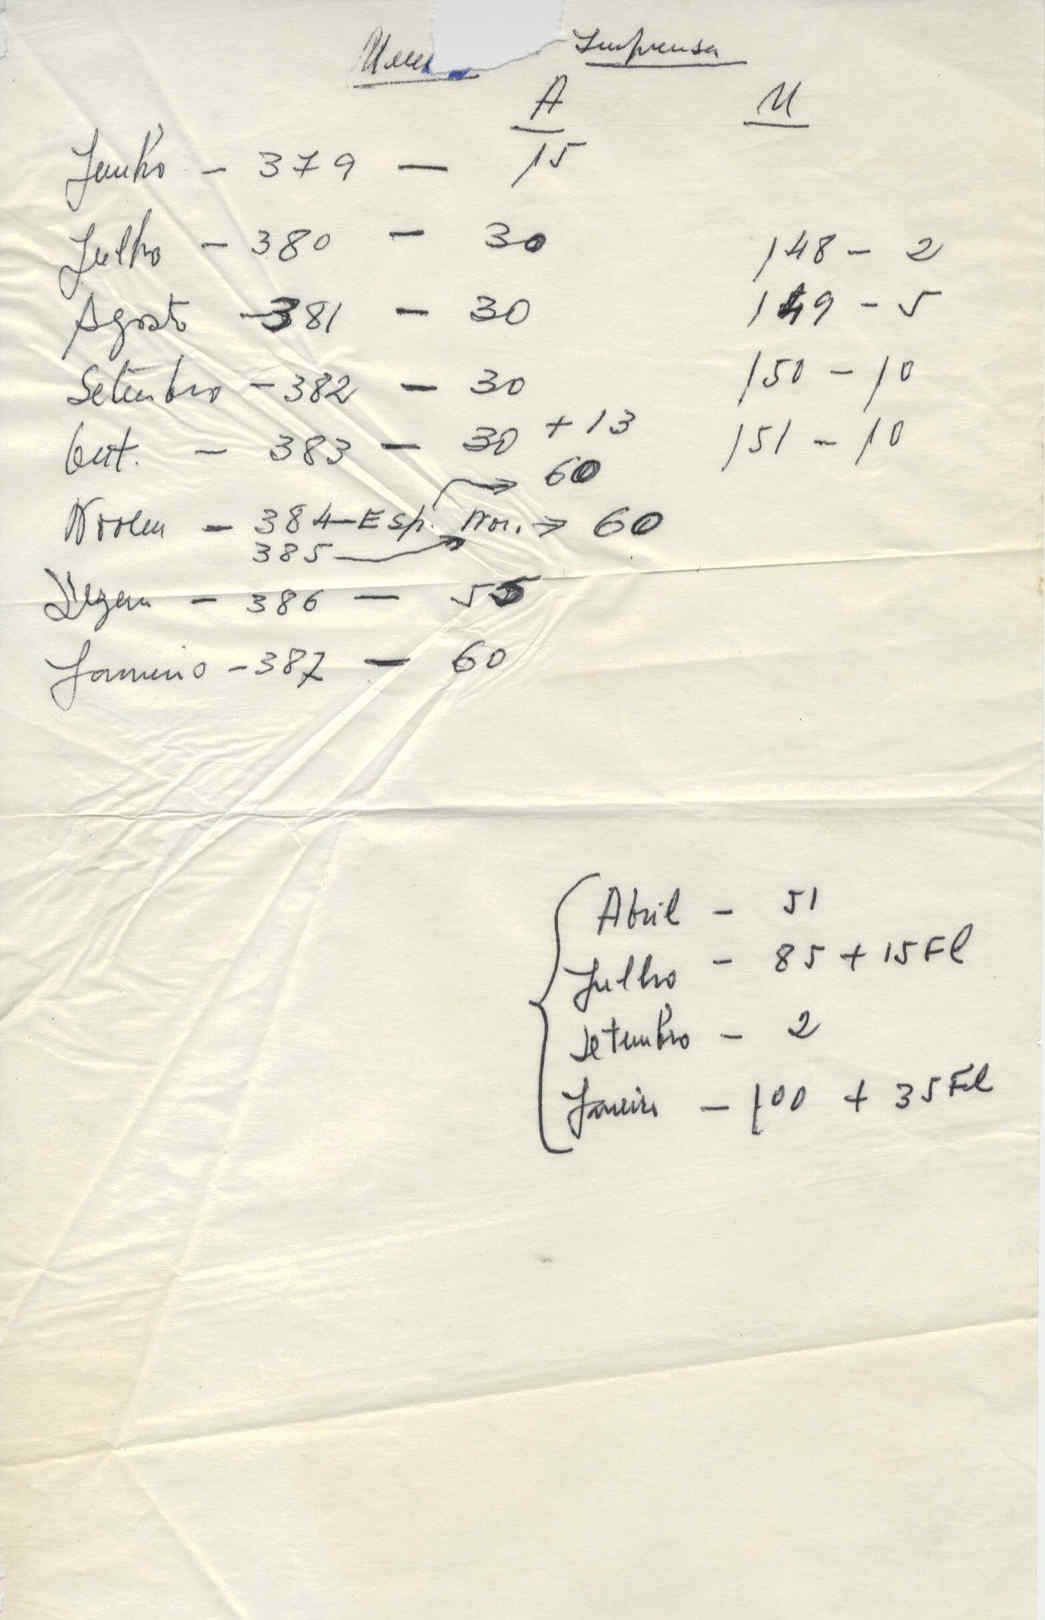 Imprensa
A M
Junho - 379 - 15
Julho - 380 - 30 148 - 2
Agosto - 381 - 30 149 - 5
Setembro - 382 - 30 150 - 10
Out. - 383 - 30 + 13 151 - 10
60
Novem - 384 - Esp. Nor. → 60
385
Dezem - 386 - 55
Janeiro - 387 - 60
Abril - 51
Julho - 85 + 15 Fl
Setembro - 2
Janeiro - 100 + 35 Fl